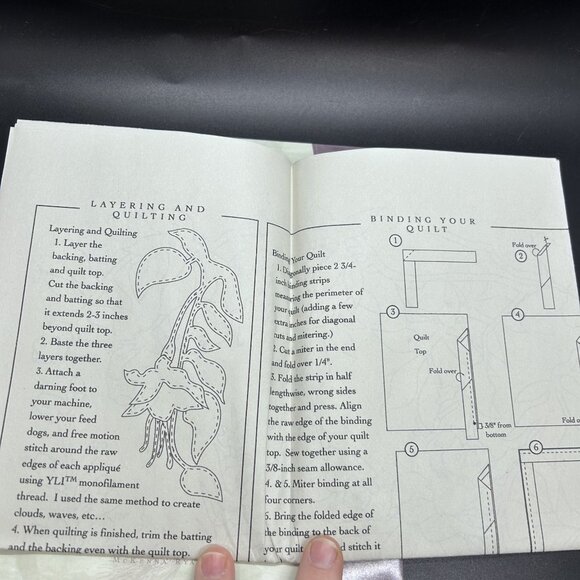 LAYERING AND
QUILTING
Layering and Quilting
1. Layer the
backing, batting
and quilt top.
Cut the backing
and batting so that
it extends 2-3 inches
beyond quilt top.
2. Baste the three
layers together.
3. Attach a
darning foot to
your machine,
lower your feed
dogs, and free motion
stitch around the raw
edges of each appliqué
using YLI™ monofilament
thread. I used the same method to create
clouds, waves, etc...
4. When quilting is finished, trim the batting
and the backing even with the quilt top.
BINDING YOUR
QUILT
Binding Your Quilt
1. Diagonally piece 2 3/4-
inch binding strips
measuring the perimeter of
your quilt (adding a few
extra inches for diagonal
cuts and mitering.)
2. Cut a miter in the end
and fold over 1/4".
3. Fold the strip in half
lengthwise, wrong sides
together and press. Align
the raw edge of the binding
with the edge of your quilt
top. Sew together using a
3/8-inch seam allowance.
4. & 5. Miter binding at all
four corners.
5. Bring the folded edge of
the binding to the back of
your quilt and stitch it
1
Fold over
2
3
Quilt
Top
Fold over
3/8" from
bottom
4
Fold o
5
6